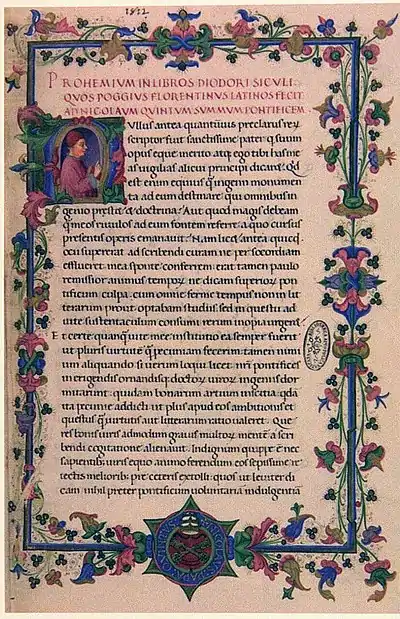 1812
PROHEMIUM IN LIBROS DIODORI SICULI
QUOS POGGIUS FLORENTINUS LATINOS FECIT
AD NICOLAUM QUINTUM SUMMUM PONTIFICEM
Vllus antea quantuuis preclarus reꝝ
scriptor fuit sanctissime pater qͥ suum
opus eque merito atqͥ ego tibi has me
as uigilias alicui principi dicarit. Qd
est enim equius qͣ ingenii monumen
ta ad eum destinare qui omnibus in
genio prestet & doctrina? Aut quod magis debeam
qͣ meos riuulos ad eum fontem referre a quo cursus
presentis operis emanauit? Nam licet antea quicqd
ocii supererat ad scribendi curam ne per socordiam
efflueret mea sponte conferrem: erat tamen paulo
remissior animus temporꝝ ne dicam superioꝝ pon
tificum culpa. cum omne ferme tempus non in lit
terarum prout optabam studiis sed in questu ad
uite sustentaculum consumi uerterem coactus
Et certe quanqͣ uite mee institutio ea semper fuerit
ut pluris uirtutem qͣ pecuniam fecerim: tamen non
um aliquando si uerum loqui licet
in erigendis ornandisqͥ doctoꝝ uiroꝝ ingeniis dor
mitarint. quidam bonarum artium inscitia qdā
ita pecunie addicti ut plus apud eos ambitionis et
questus qͣ uirtutis aut litterarum ratio ualeret. Que
res bonis uiris admodum grauis multoꝝ mentē a scri
bendi cogitatione alienauit. Indignum quippe ē nec
sapientibus uiris equo animo ferendum eos sepissime re
iectis melioribꝫ pre ceteris extolli: quos ut leuiter di
cam nihil preter pontificum uoluntaria indulgentia